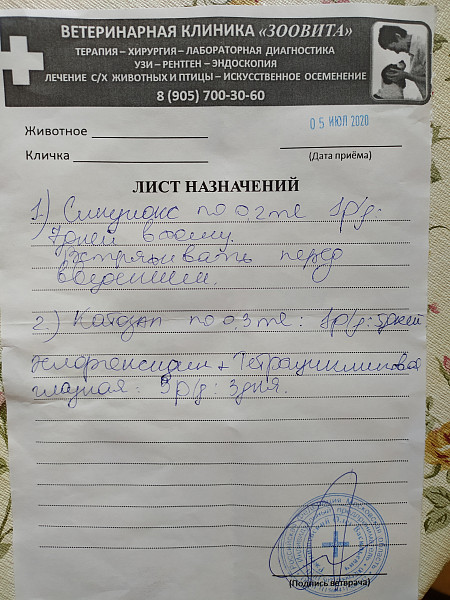 ВЕТЕРИНАРНАЯ КЛИНИКА «ЗООВИТА»
ТЕРАПИЯ – ХИРУРГИЯ – ЛАБОРАТОРНАЯ ДИАГНОСТИКА
УЗИ – РЕНТГЕН – ЭНДОСКОПИЯ
ЛЕЧЕНИЕ С/Х ЖИВОТНЫХ И ПТИЦЫ – ИСКУССТВЕННОЕ ОСЕМЕНЕНИЕ
8 (905) 700-30-60
05 ИЮЛ 2020
Животное
Кличка
(Дата приёма)
ЛИСТ НАЗНАЧЕНИЙ
1.) Синулокс по 0.2 мл 1р/д:
7 дней в холку.
Встряхивать перед
введением.
2.) Катозал по 0.3 мл: 1р/д: 5 дней
Хлоргексидин + Тетрациклиновая
глазная: 3 р/д: 3 дня.
(Подпись ветврача)